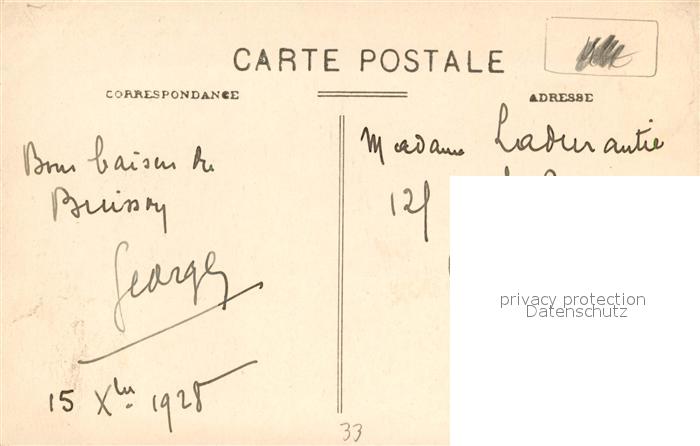 CARTE POSTALE
CORRESPONDANCE
ADRESSE
Bons baisers de
Buisson
Georges
15 Xbre 1928
Madame Ladurantie
125
privacy protection
Datenschutz
33